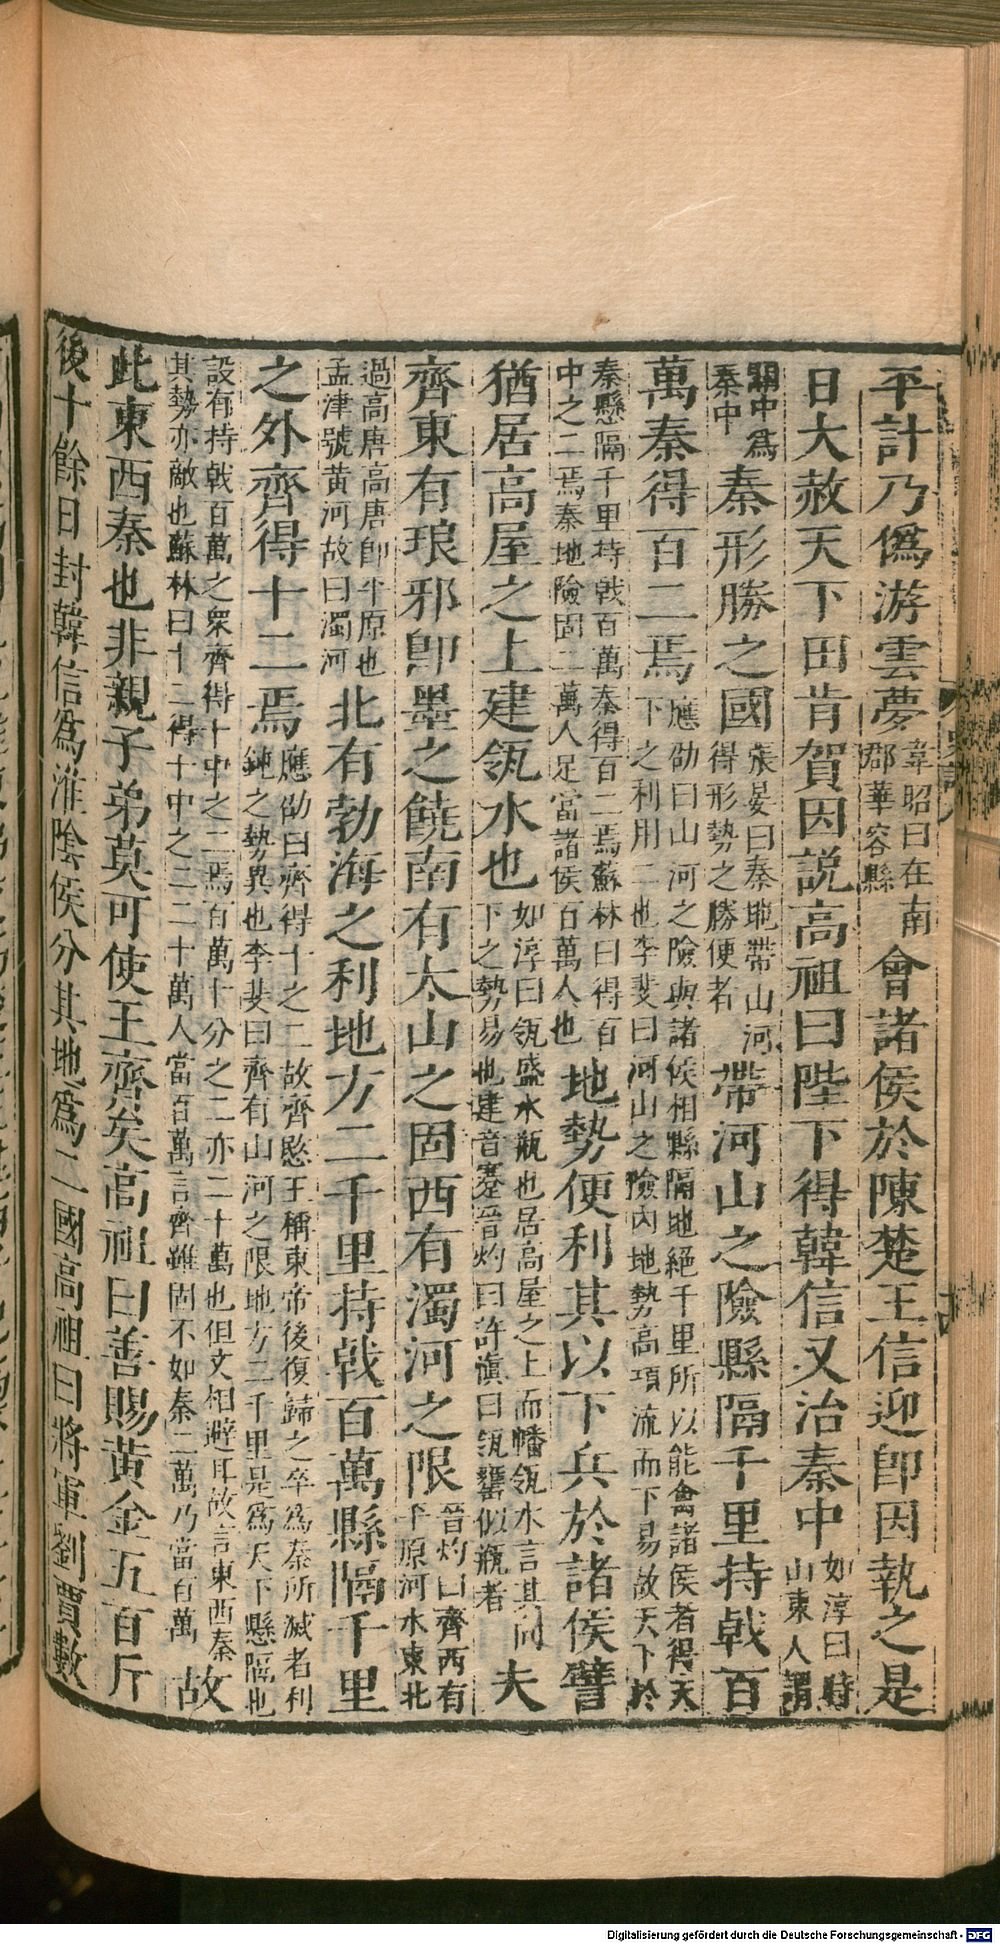 平計乃僞游雲夢韋昭曰在南郡華容縣會諸侯於陳楚王信迎卽因執之是
日大赦天下田肯賀因説高祖曰陛下得韓信又治秦中如淳曰時山東人謂
關中爲秦中秦形勝之國張晏曰秦地帶山河得形勢之勝便者帶河山之險縣隔千里持戟百
萬秦得百二焉應劭曰山河之險與諸侯相縣隔地絕千里所以能禽諸侯者得天下之利用二也李斐曰河山之險內地勢高項流而下易故天下於
秦懸隔千里持戟百萬秦得百二焉蘇林曰得百中之二焉秦地險固二萬人足當諸侯百萬人也地勢便利其以下兵於諸侯譬
猶居高屋之上建瓴水也如淳曰瓴盛水瓶也居高屋之上而幡瓴水言其向下之勢易也建音蹇晉灼曰許滇曰瓴甕似瓶者夫
齊東有琅邪卽墨之饒南有太山之固西有濁河之限晉灼曰齊西有平原河水東北
過高唐高唐卽平原也孟津號黃河故曰濁河北有勃海之利地方二千里持戟百萬縣隔千里
之外齊得十二焉應劭曰齊得十之二故齊愍王稱東帝後復歸之卒爲秦所滅者利鈍之勢異也李斐曰齊有山河之限地方二千里是爲天下懸隔也
設有持戟百萬之衆齊得十中之二焉百萬十分之二亦二十萬也但文相避耳故言東西秦其勢亦敵也蘇林曰十二得十中之二二十萬人當百萬言齊雖固不如秦二萬乃當百萬故
此東西秦也非親子弟莫可使王齊矣高祖曰善賜黃金五百斤
後十餘日封韓信爲淮陰侯分其地爲二國高祖曰將軍劉賈數
Digitalisierung gefördert durch die Deutsche Forschungsgemeinschaft - DFG